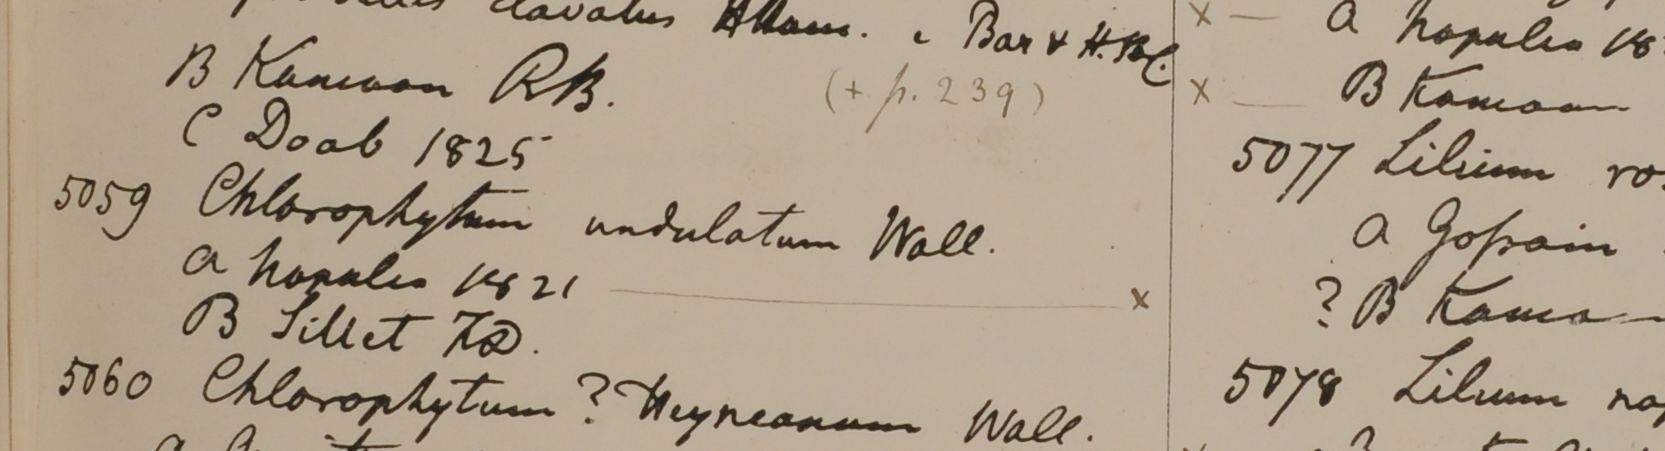 clavatus
Bar & H.
B Kamaon RB.
(+ p. 239)
C Doab 1825
5059 Chlorophytum undulatum Wall.
a Napalia 1821 x
B Sillet FD.
5060 Chlorophytum ? Heyneanum Wall.
x — a Napalia 18
x — B Kamaon
5077 Lilium ro
a Gosain
? B Kamao
5078 Lilium